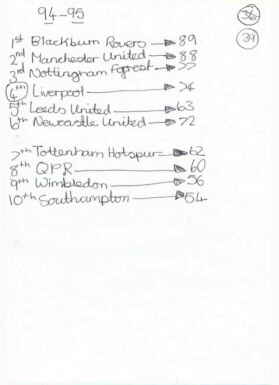 94-95
36
39
1st Blackburn Rovers → 89
2nd Manchester United → 88
3rd Nottingham Forest → 77
4th Liverpool → 74
5th Leeds United → 63
6th Newcastle United → 72
7th Tottenham Hotspur → 62
8th QPR → 60
9th Wimbledon → 56
10th Southampton → 54